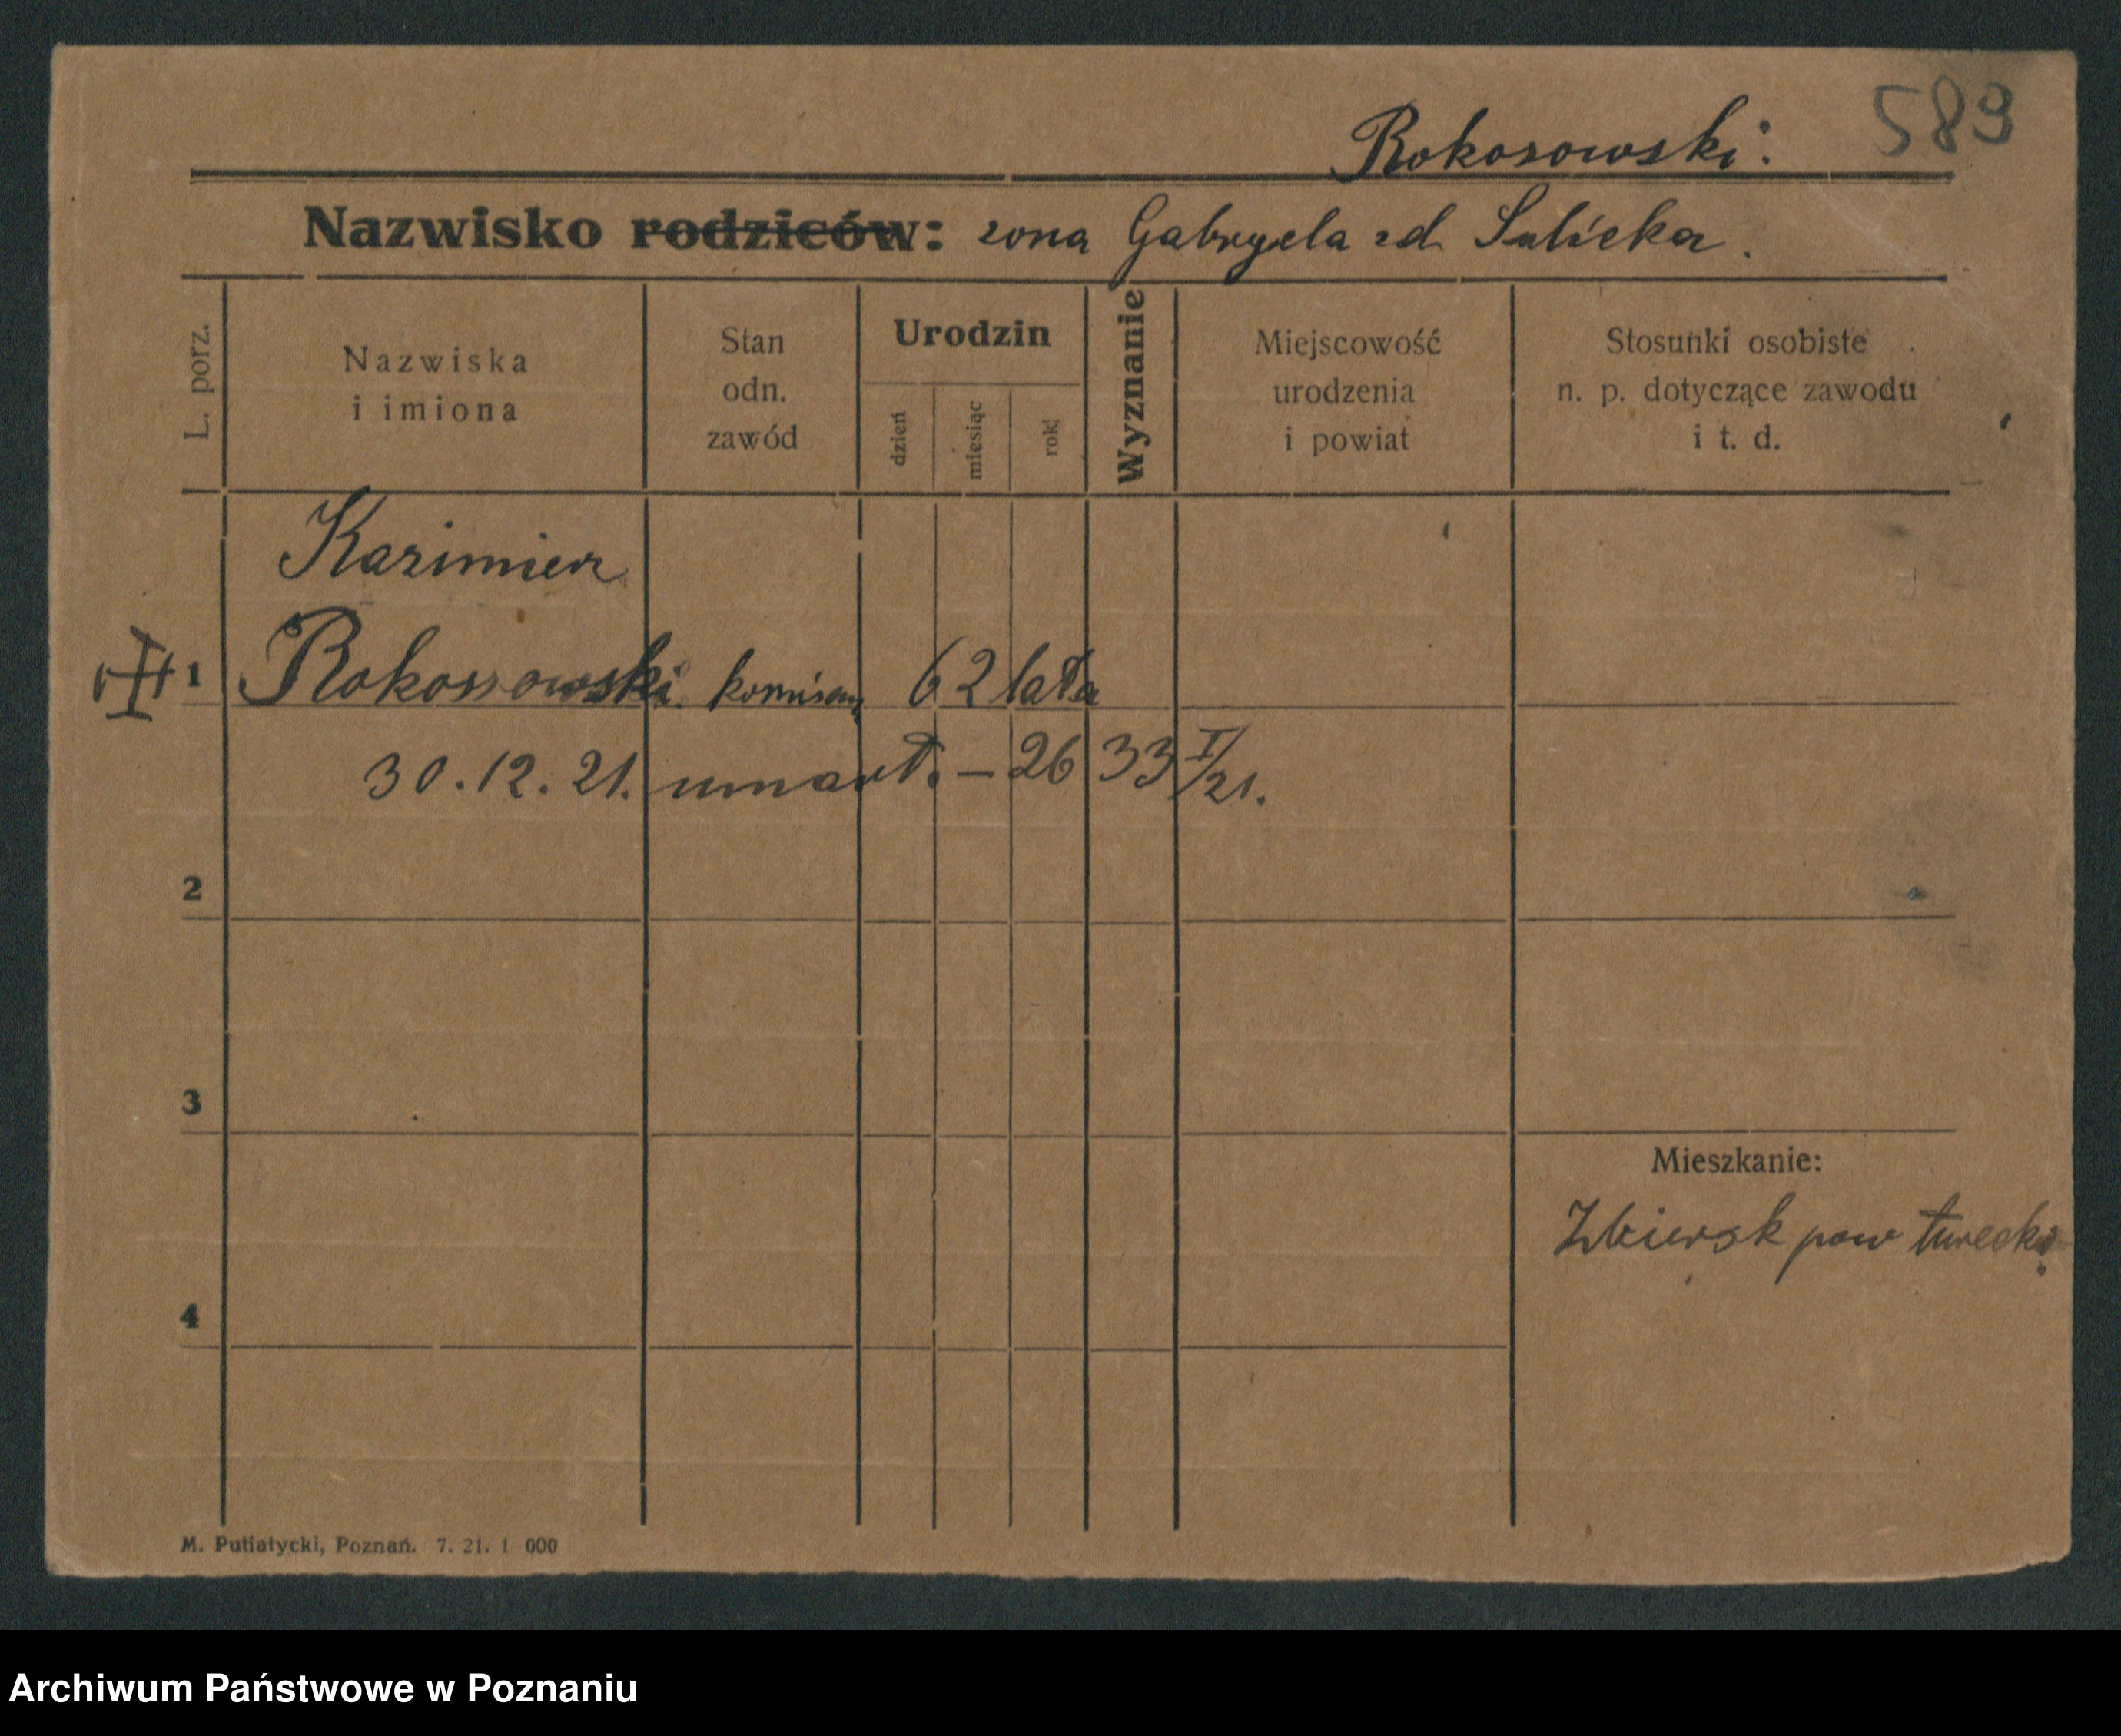 589
Rokosowski.
Nazwisko rodziców: żona Gabryela zd. Salicka.
L. porz.
Nazwiska
i imiona
Stan
odn.
zawód
Urodzin
dzień
miesiąc
rok
Wyznanie
Miejscowość
urodzenia
i powiat
Stosunki osobiste
n. p. dotyczące zawodu
i t. d.
Kazimierz
1 Rokossowski. 62 lata
30.12.21. umarł. – 26 33 I/21.
2
3
Mieszkanie:
Zbiersk pow turecki
4
M. Putiatycki, Poznań. 7. 21. 1 000
Archiwum Państwowe w Poznaniu